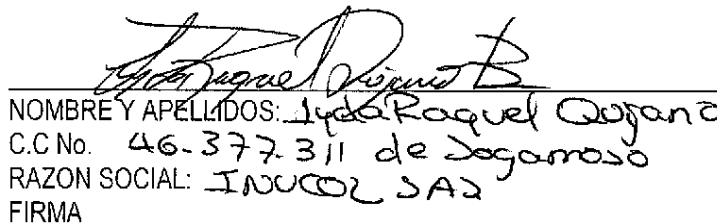 Lyda Raquel Quijano B
NOMBRE Y APELLIDOS: Lyda Raquel Quijano
C.C No. 46-377.311 de Sogamoso
RAZON SOCIAL: INUCOL SAS
FIRMA